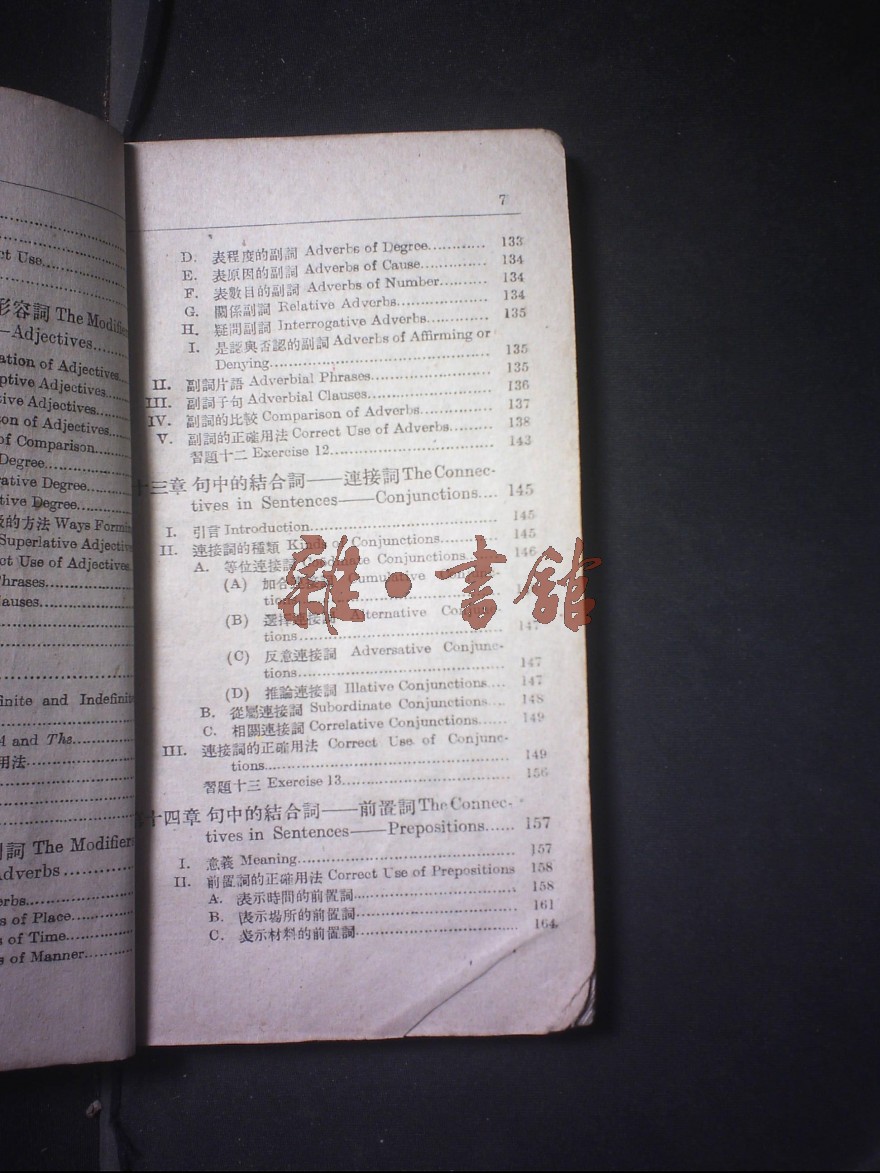 ct Use
形容詞 The Modifiers
—Adjectives
ation of Adjectives
ptive Adjectives
tive Adjectives
son of Adjectives
of Comparison
Degree
ative Degree
tive Degree
的方法 Ways Forming
Superlative Adjective
ct Use of Adjectives
Phrases
lauses
inite and Indefinite
A and The
用法
詞 The Modifiers
Adverbs
erbs
s of Place
s of Time
s of Manner
7
D. 表程度的副詞 Adverbs of Degree............ 133
E. 表原因的副詞 Adverbs of Cause............ 134
F. 表數目的副詞 Adverbs of Number.......... 134
G. 關係副詞 Relative Adverbs................ 134
H. 疑問副詞 Interrogative Adverbs............ 135
I. 是認與否認的副詞 Adverbs of Affirming or
Denying........................................ 135
II. 副詞片語 Adverbial Phrases...................... 135
III. 副詞子句 Adverbial Clauses...................... 136
IV. 副詞的比較 Comparison of Adverbs............ 137
V. 副詞的正確用法 Correct Use of Adverbs......... 138
習題十二 Exercise 12.............................. 143
十三章 句中的結合詞——連接詞 The Connec-
tives in Sentences——Conjunctions.... 145
I. 引言 Introduction.................................... 145
II. 連接詞的種類 Kinds of Conjunctions............ 145
A. 等位連接詞 Coordinate Conjunctions...... 146
(A) 加合連接詞 Cumulative Conjunc-
tions
(B) 選擇連接詞 Alternative Conjunc-
tions.................................... 147
(C) 反意連接詞 Adversative Conjunc-
tions.................................... 147
(D) 推論連接詞 Illative Conjunctions.... 147
B. 從屬連接詞 Subordinate Conjunctions.... 148
C. 相關連接詞 Correlative Conjunctions...... 149
III. 連接詞的正確用法 Correct Use of Conjunc-
tions.......................................... 149
習題十三 Exercise 13.............................. 156
十四章 句中的結合詞——前置詞 The Connec-
tives in Sentences——Prepositions...... 157
I. 意義 Meaning........................................ 157
II. 前置詞的正確用法 Correct Use of Prepositions 158
A. 表示時間的前置詞............................ 158
B. 表示場所的前置詞............................ 161
C. 表示材料的前置詞............................ 164
雜·書館